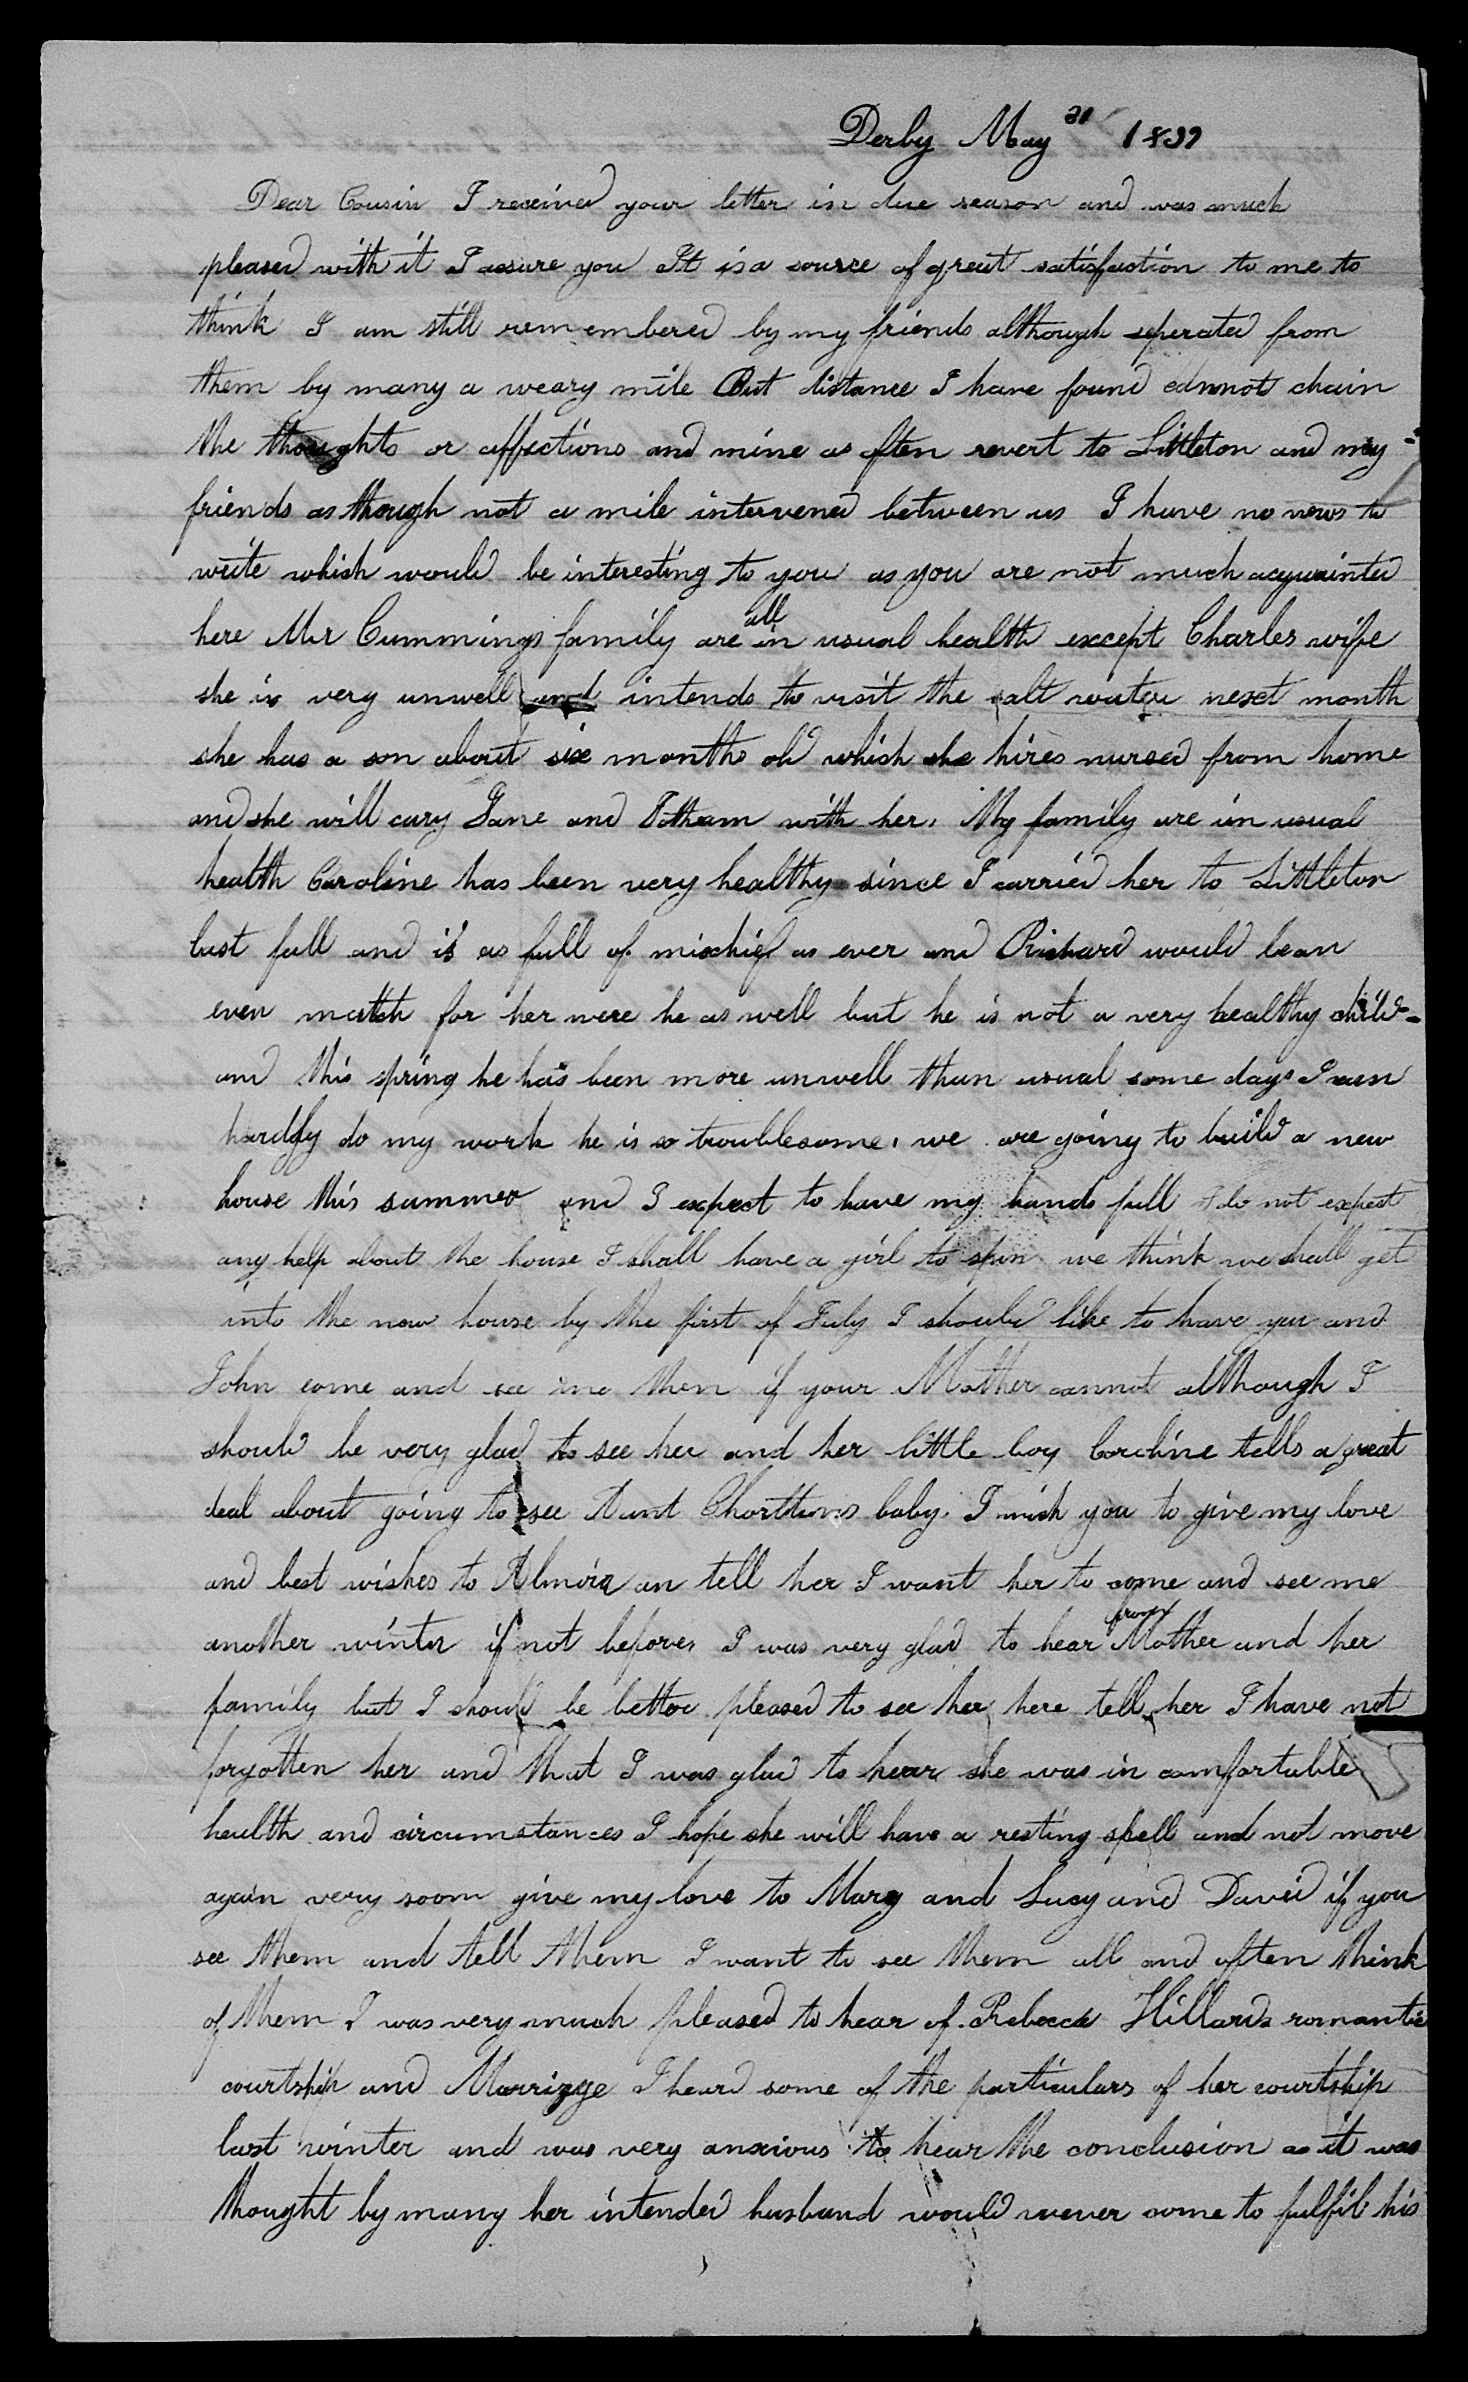 Derby May 21 1837
Dear Cousin I received your letter in due season and was much
pleased with it I assure you It is a source of great satisfaction to me to
think I am still remembered by my friends although seperated from
them by many a weary mile But distance I have found cannot chain
the thoughts or affections and mine as often revert to Littleton and my
friends as though not a mile intervened between us I have no news to
write which would be interesting to you as you are not much acquainted
here Mr Cummings family are all in usual health except Charles wife
she is very unwell and intends to visit the salt water next month
she has a son about six months old which she hires nursed from home
and she will cary Jane and with her. My family are in usual
health Caroline has been very healthy since I carried her to Littleton
last fall and is as full of mischief as ever and Richard would be an
even match for her were he as well but he is not a very healthy child
and this spring he has been more unwell than usual some days I can
hardly do my work he is so troublesome. we are going to build a new
house this summer and I expect to have my hands full I do not expect
any help about the house I shall have a girl to spin we think we shall get
into the new house by the first of July I should like to have you and
John come and see me then if your Mother cannot although I
should be very glad to see her and her little boy Caroline tells a great
deal about going to see Aunt baby. I wish you to give my love
and best wishes to Almira an tell her I want her to come and see me
another winter if not before. I was very glad to hear from Mother and her
family but I should be better pleased to see her here tell her I have not
forgotten her and that I was glad to hear she was in comfortable
health and circumstances I hope she will have a resting spell and not move
again very soon give my love to Mary and Lucy and David if you
see them and tell them I want to see them all and often think
of them I was very much pleased to hear of Rebecca Hillards romantic
courtship and Marriage I heard some of the particulars of her courtship
last winter and was very anxious to hear the conclusion as it was
thought by many her intended husband would never come to fulfil his